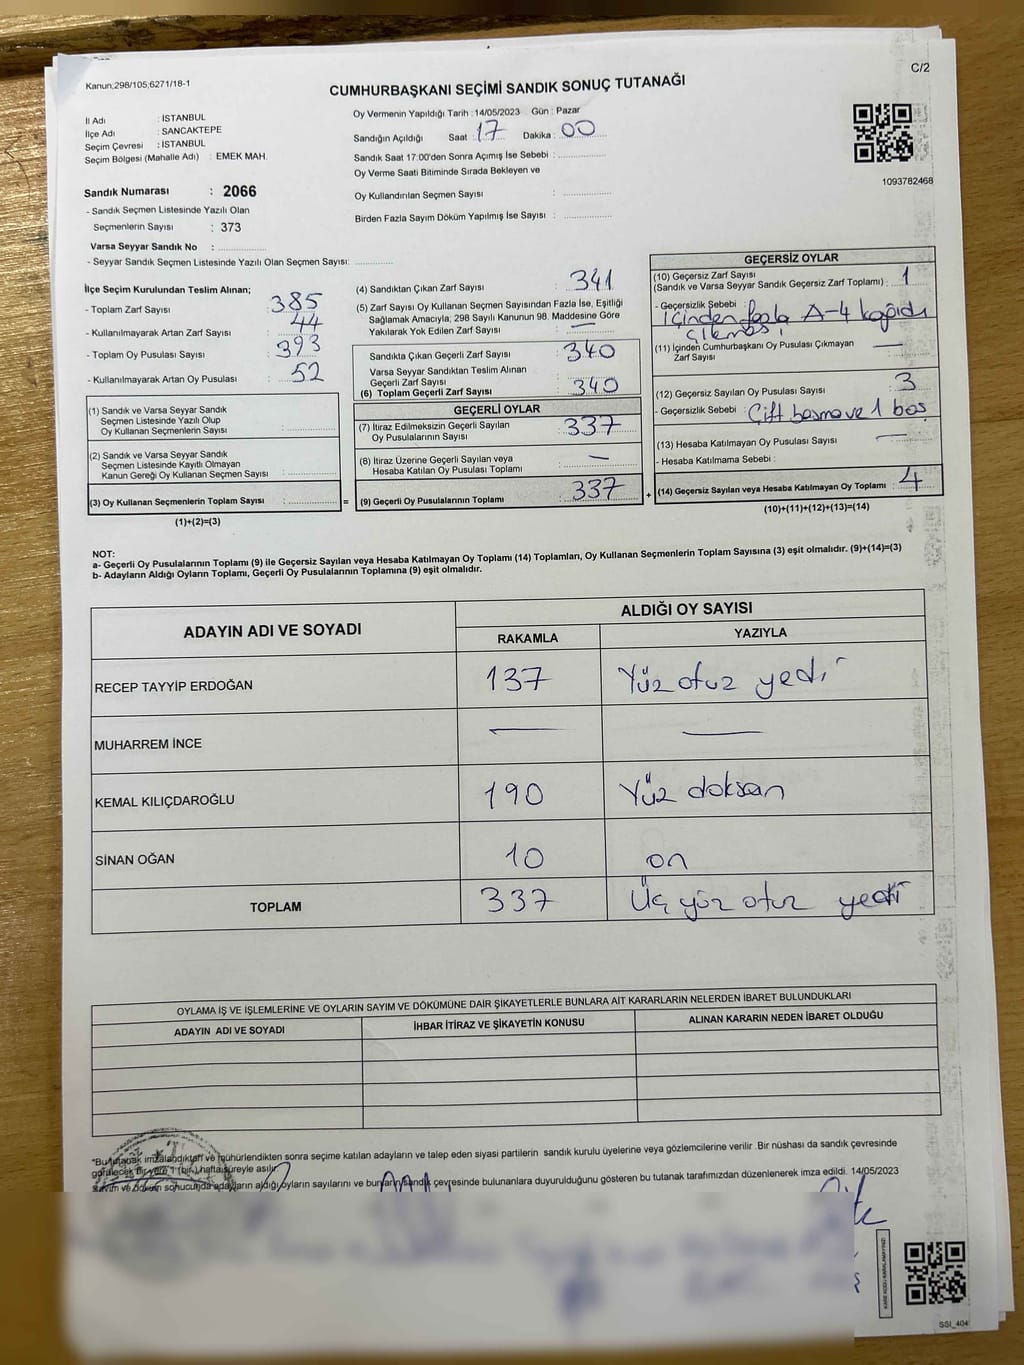 Kanun;298/105;6271/18-1
C/2
CUMHURBAŞKANI SEÇİMİ SANDIK SONUÇ TUTANAĞI
İl Adı : İSTANBUL
İlçe Adı : SANCAKTEPE
Seçim Çevresi : İSTANBUL
Seçim Bölgesi (Mahalle Adı) : EMEK MAH.
Sandık Numarası : 2066
- Sandık Seçmen Listesinde Yazılı Olan
Seçmenlerin Sayısı : 373
Varsa Seyyar Sandık No :
- Seyyar Sandık Seçmen Listesinde Yazılı Olan Seçmen Sayısı:
Oy Vermenin Yapıldığı Tarih : 14/05/2023 Gün : Pazar
Sandığın Açıldığı Saat : 17 Dakika : 00
Sandık Saat 17:00'den Sonra Açımış İse Sebebi :
Oy Verme Saati Bitiminde Sırada Bekleyen ve
Oy Kullandırılan Seçmen Sayısı :
Birden Fazla Sayım Döküm Yapılmış İse Sayısı :
1093782468
İlçe Seçim Kurulundan Teslim Alınan;
- Toplam Zarf Sayısı : 385
- Kullanılmayarak Artan Zarf Sayısı : 44
- Toplam Oy Pusulası Sayısı : 393
- Kullanılmayarak Artan Oy Pusulası : 52
(1) Sandık ve Varsa Seyyar Sandık
Seçmen Listesinde Yazılı Olup
Oy Kullanan Seçmenlerin Sayısı :
(2) Sandık ve Varsa Seyyar Sandık
Seçmen Listesinde Kayıtlı Olmayan
Kanun Gereği Oy Kullanan Seçmen Sayısı :
(3) Oy Kullanan Seçmenlerin Toplam Sayısı : =
(1)+(2)=(3)
(4) Sandıktan Çıkan Zarf Sayısı : 341
(5) Zarf Sayısı Oy Kullanan Seçmen Sayısından Fazla İse, Eşitliği
Sağlamak Amacıyla, 298 Sayılı Kanunun 98. Maddesine Göre
Yakılarak Yok Edilen Zarf Sayısı : —
Sandıkta Çıkan Geçerli Zarf Sayısı : 340
Varsa Seyyar Sandıktan Teslim Alınan
Geçerli Zarf Sayısı :
(6) Toplam Geçerli Zarf Sayısı : 340
GEÇERLİ OYLAR
(7) İtiraz Edilmeksizin Geçerli Sayılan
Oy Pusulalarının Sayısı : 337
(8) İtiraz Üzerine Geçerli Sayılan veya
Hesaba Katılan Oy Pusulası Toplamı : —
(9) Geçerli Oy Pusulalarının Toplamı : 337 +
GEÇERSİZ OYLAR
(10) Geçersiz Zarf Sayısı
(Sandık ve Varsa Seyyar Sandık Geçersiz Zarf Toplamı) : 1
- Geçersizlik Sebebi : İçinden fazla A-4 kağıdı
çıkması
(11) İçinden Cumhurbaşkanı Oy Pusulası Çıkmayan
Zarf Sayısı : —
(12) Geçersiz Sayılan Oy Pusulası Sayısı : 3
- Geçersizlik Sebebi : Çift basma ve 1 boş
(13) Hesaba Katılmayan Oy Pusulası Sayısı : —
- Hesaba Katılmama Sebebi :
(14) Geçersiz Sayılan veya Hesaba Katılmayan Oy Toplamı : 4
(10)+(11)+(12)+(13)=(14)
NOT:
a- Geçerli Oy Pusulalarının Toplamı (9) ile Geçersiz Sayılan veya Hesaba Katılmayan Oy Toplamı (14) Toplamları, Oy Kullanan Seçmenlerin Toplam Sayısına (3) eşit olmalıdır. (9)+(14)=(3)
b- Adayların Aldığı Oyların Toplamı, Geçerli Oy Pusulalarının Toplamına (9) eşit olmalıdır.
ADAYIN ADI VE SOYADI ALDIĞI OY SAYISI
RAKAMLA YAZIYLA
RECEP TAYYİP ERDOĞAN 137 Yüz otuz yedi
MUHARREM İNCE — —
KEMAL KILIÇDAROĞLU 190 Yüz doksan
SİNAN OĞAN 10 on
TOPLAM 337 Üç yüz otuz yedi
OYLAMA İŞ VE İŞLEMLERİNE VE OYLARIN SAYIM VE DÖKÜMÜNE DAİR ŞİKAYETLERLE BUNLARA AİT KARARLARIN NELERDEN İBARET BULUNDUKLARI
ADAYIN ADI VE SOYADI İHBAR İTİRAZ VE ŞİKAYETİN KONUSU ALINAN KARARIN NEDEN İBARET OLDUĞU
*Bu tutanak imzalandıktan ve mühürlendikten sonra seçime katılan adayların ve talep eden siyasi partilerin sandık kurulu üyelerine veya gözlemcilerine verilir .Bir nüshası da sandık çevresinde
görülecek bir yere 1 (bir) hafta süreyle asılır.
Sayım ve döküm sonucunda adayların aldığı oyların sayılarını ve bunların sandık çevresinde bulunanlara duyurulduğunu gösteren bu tutanak tarafımızdan düzenlenerek imza edildi. 14/05/2023
SSI_404